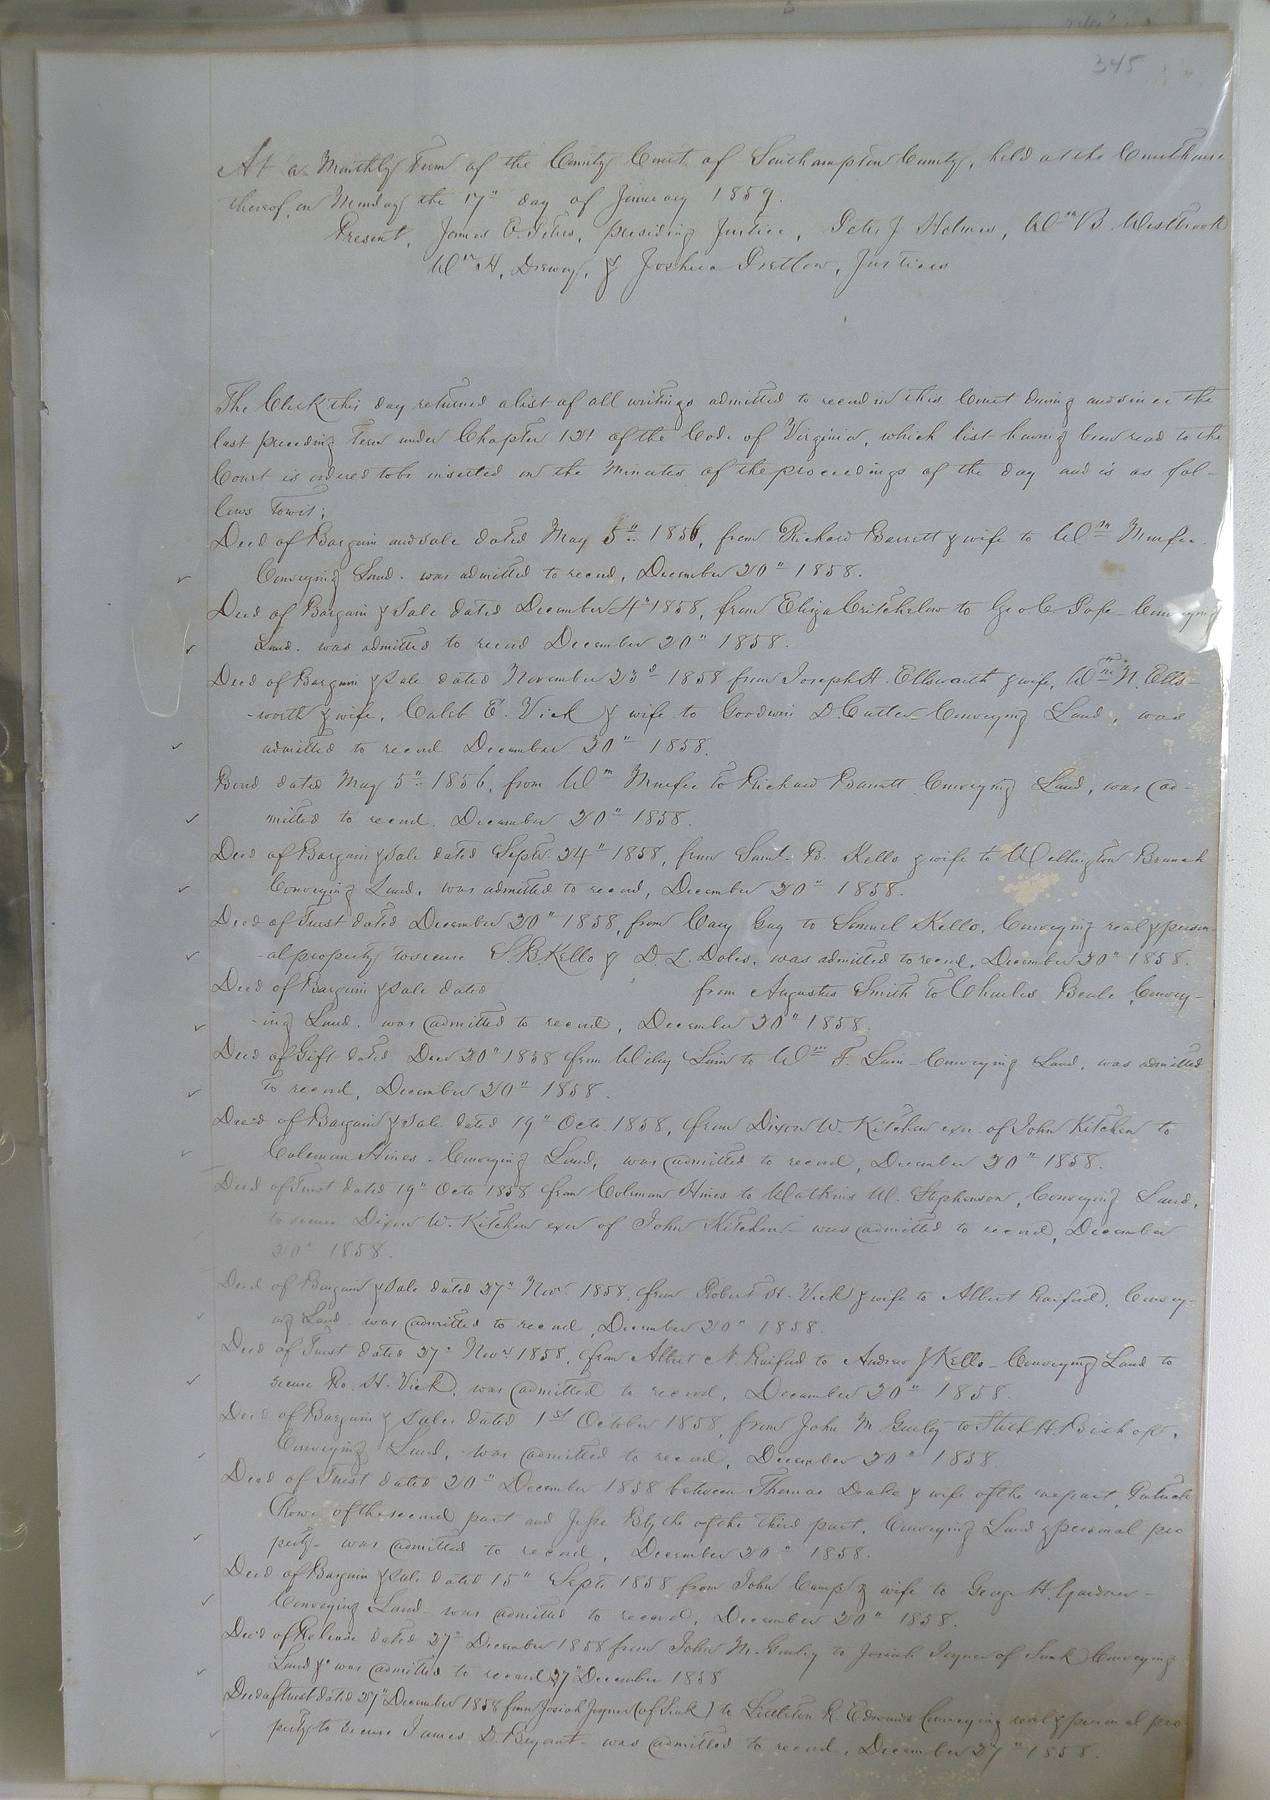 345
At a Monthly Term of the County Court of Southampton County, held at the Courthouse
thereof, on Monday the 17" day of January 1859.
Present, James C. Peters, presiding Justice, Peter J Holmes, Wm B. Westbrook
Wm H, Drewry, & Joshua Pretlow, Justices
The Clerk this day returned a list of all writings admitted to record in this Court during and since the
last preceding Term under Chapter 121 of the Code of Virginia, which list having been read to the
Court is ordered to be inserted in the Minutes of the proceedings of the day and is as fol-
lows Towit;
Deed of Bargain and Sale dated May 5th 1856, from Richard Barrett & wife to Wm Murfee.
Conveying Land. was admitted to record, December 20" 1858.
Deed of Bargain & Sale dated December 4" 1858, from Eliza Critchelow to Geo C Pope - Conveying
Land. was admitted to record December 20" 1858.
Deed of Bargain & Sale dated November 23d 1858 from Joseph H. Ellsworth & wife, Wm N. Ells-
-worth & wife, Caleb E. Vick & wife to Goodwin D. Cutler Conveying Land, was
admitted to record December 20" 1858.
Bond dated May 5" 1856, from Wm Murfee to Richard Barrett Conveying Land, was ad-
mitted to record. December 20" 1858.
Deed of Bargain & Sale dated Septr. 24" 1858, from Saml. B. Kello & wife to Wellington Branch
Conveying Land. was admitted to record, December 20" 1858.
Deed of Trust dated December 20" 1858, from Cary Guy to Samuel Kello, Conveying real & person
-al property to secure S. B. Kello & D L. Doles. was admitted to record, December 20" 1858.
Deed of Bargain & Sale dated from Augustus Smith to Charles Beale Convey-
-ing Land. was admitted to record, December 20" 1858.
Deed of Gift dated Decr 20" 1858 from Wiley Lain to Wm F. Lain Conveying Land, was admitted
to record, December 20" 1858.
Deed of Bargain & Sale dated 19" Octo. 1858, from Dixon W. Kitchen exor of John Kitchen to
Coleman Hines - Conveying Land, was admitted to record, December 20" 1858.
Deed of Trust dated 19" Octo 1858 from Coleman Hines to Watkins W. Stephenson, Conveying Land,
to secure Dixon W. Kitchen exor of John Kitchen - was admitted to record, December
20" 1858.
Deed of Bargain & Sale dated 27" Novr 1858, from Robert H. Vick & wife to Albert Raiford, Convey-
ing Land - was admitted to record, December 20" 1858.
Deed of Trust dated 27" Novr 1858, from Albert N. Raiford to Andrew J Kello - Conveying Land to
secure Ro. H. Vick, was admitted to record, December 20" 1858.
Deed of Bargain & Sale dated 1st October 1858, from John M Gurley to H Bishop,
Conveying Land, was admitted to record, December 20" 1858.
Deed of Trust dated 20" December 1858 between Thomas Drake & wife of the one part, Patrick
Rowe of the second part and Jesse Blythe of the third part, Conveying Land & personal pro
perty - was admitted to record, December 20" 1858.
Deed of Bargain & Sale dated 15" Septr 1858 from John Camp & wife to George H. Gardner -
Conveying Land - was admitted to record, December 20" 1858.
Deed of Release dated 27" December 1858 from John M. Gurley to Josiah Joyner of Conveying
Land &c was admitted to record 27" December 1858
Deed of Trust dated 27" December 1858 from Josiah Joyner (of ) to Littleton R. Edwards Conveying real & personal pro
perty to secure James D. Bryant - was admitted to record, December 27" 1858.